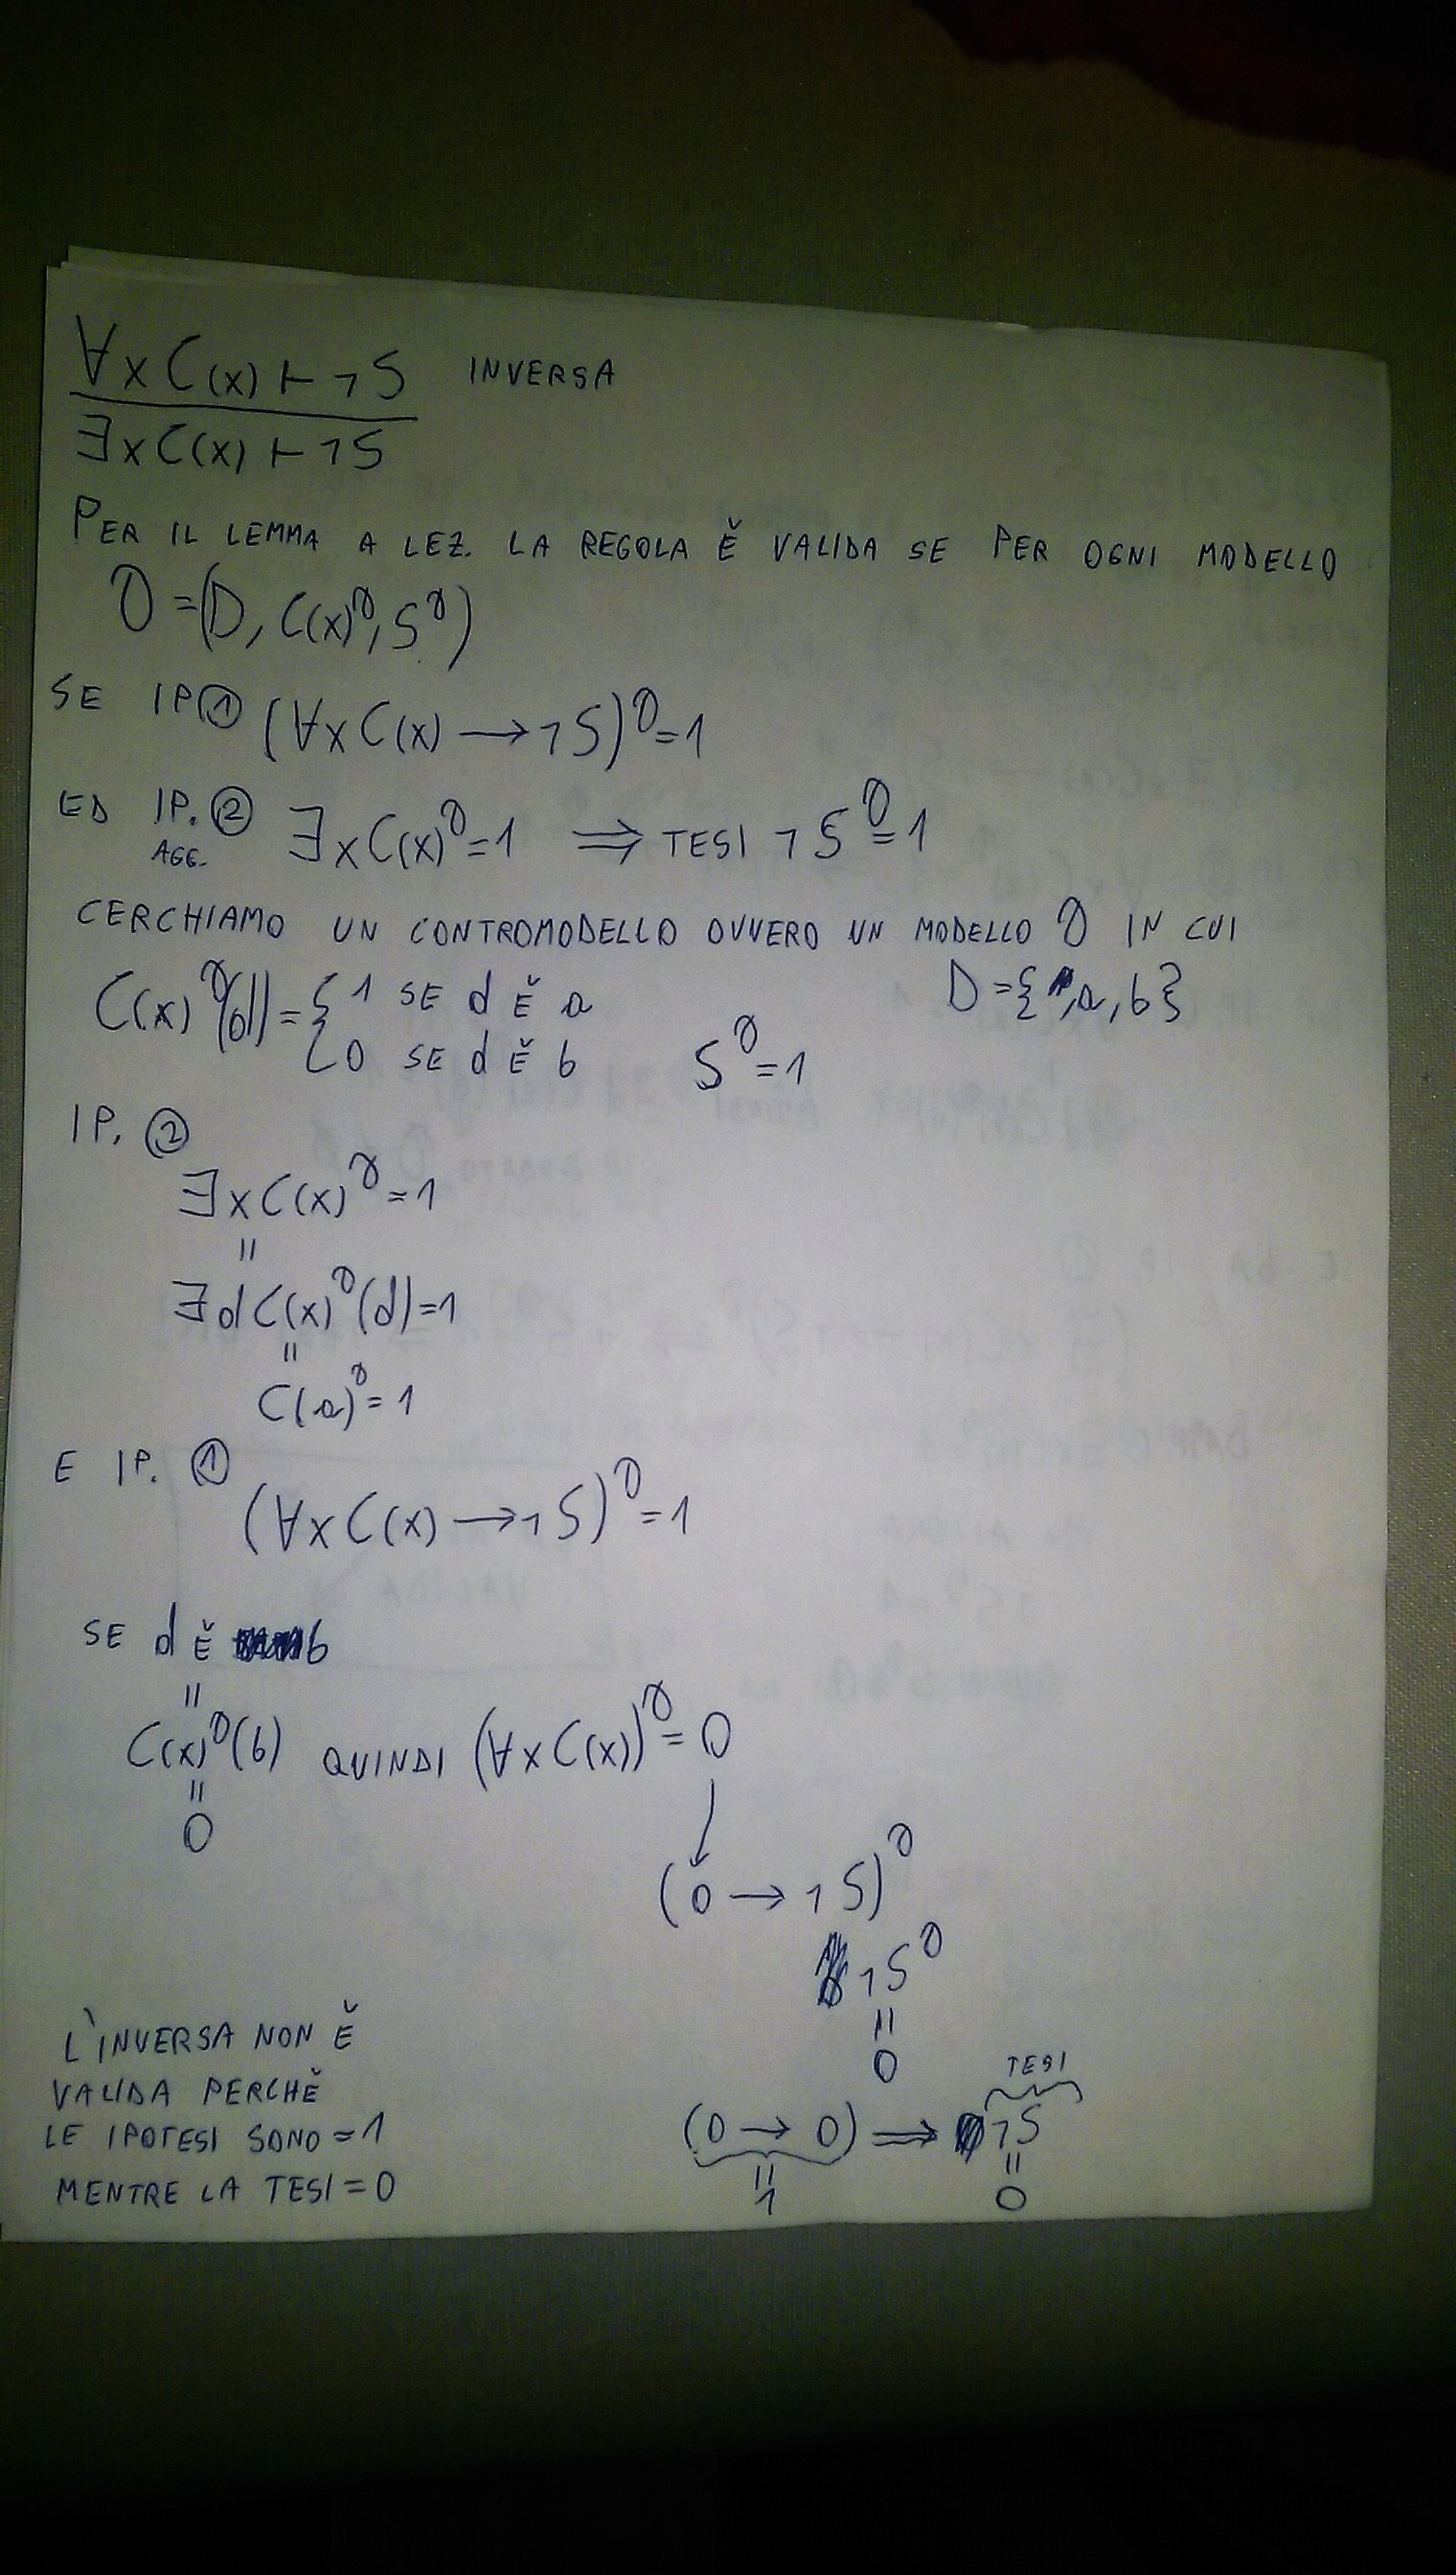 ∀x C(x) ⊢ ¬S INVERSA
∃x C(x) ⊢ ¬S
PER IL LEMMA A LEZ. LA REGOLA È VALIDA SE PER OGNI MODELLO
D = (D, C(x)^D, S^D)
SE IP ① (∀x C(x) → ¬S)^D = 1
ED IP. ② ∃x C(x)^D = 1 ⇒ TESI ¬S^D = 1
AGG.
CERCHIAMO UN CONTROMODELLO OVVERO UN MODELLO D IN CUI
C(x)^D(d) = { 1 SE d È a D = {a, b}
0 SE d È b S^D = 1
IP. ②
∃x C(x)^D = 1
=
∃d C(x)^D(d) = 1
=
C(a)^D = 1
E IP. ①
(∀x C(x) → ¬S)^D = 1
SE d È b
=
C(x)^D(b) QUINDI (∀x C(x))^D = 0
=
0
(0 → ¬S)^D
¬S^D
=
0
L'INVERSA NON È
VALIDA PERCHÈ
LE IPOTESI SONO = 1
MENTRE LA TESI = 0
TESI
(0 → 0) ⇒ ¬S
= =
1 0